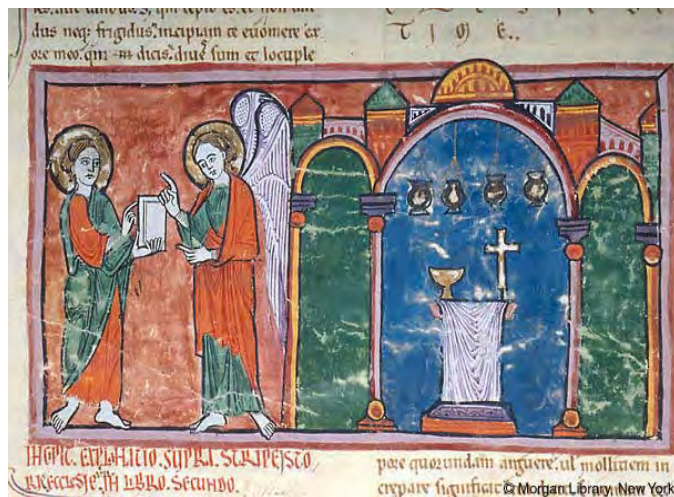 dus neq; frigidus. incipiam te euomere ex
ore meo. qui dicis. sum et locuple
T I O E..
INCIPIT EXPLANATIO SUPRA SCRIPTE ISTO
RIE ECCLESIE IN LIBRO SECUNDO.
pore quorundam anguere. ul mollitiem in
crepare significat
© Morgan Library, New York